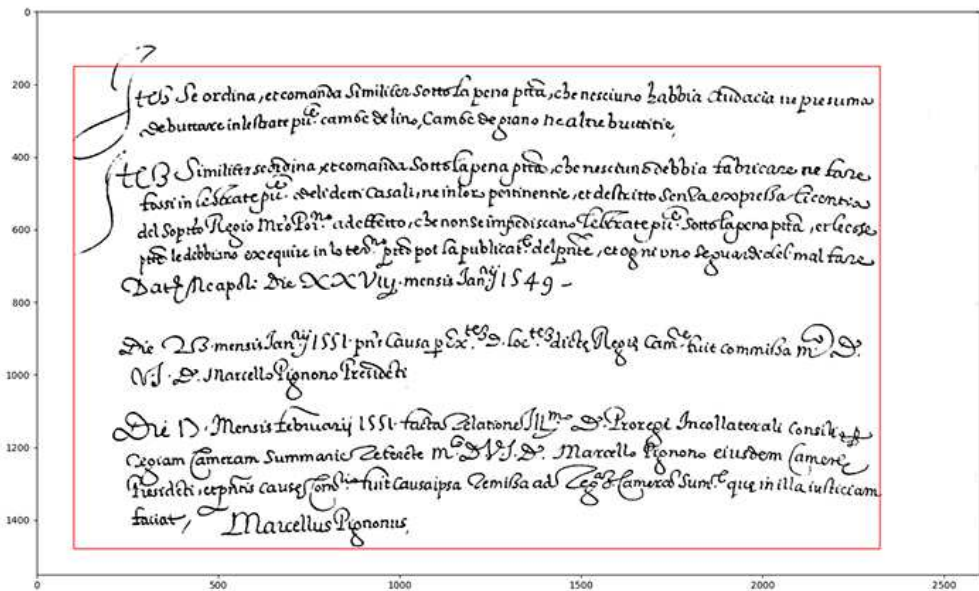 Itē Se ordina, et comanda Similiter Sotto la pena pttā, che nesciuno habbia Audacia ne presuma
de buttare in le strate pu:ce cambe de lino, Cambe de grano ne altre bruttitie,
Itē Similiter se ordina, et comanda Sotto la pena pttā, che nesciuno debbia fabricare ne fare
fossi in le strate pu:ce deli detti Casali, ne in loro pertinentie, et destritto Senza expressa licentia
del Sop.to Regio Mro ad effetto, che non se impediscano le strate pu:ce Sotto la pena pttā, et le cose
le debbiano exequire in lo la publicat.e del pnte, et ogni uno se guardi del mal fare
Dat Neapoli Die XXVIIJ mensis Jan.ij 1549 -
Die mensis Jan.ij 1551 pn̄s Causa p Ex.tes D. loc.tes dicte Regie Cam.e fuit commissa m.co D.
V.J.D. Marcello Pignono Presidēti
Die Mensis februarij 1551 facta relatione Ill.mo D. Proregi In collaterali consilio p
regiam Cameram Summarie referēte m.co D. V.J.D. Marcello Pignono eiusdem Camere
Presidēti, et pn̄tis cause fuit causa ipsa remissa ad Reg.am Camerā Sum.e que in illa iusticiam
faciat,
Marcellus Pignonus,